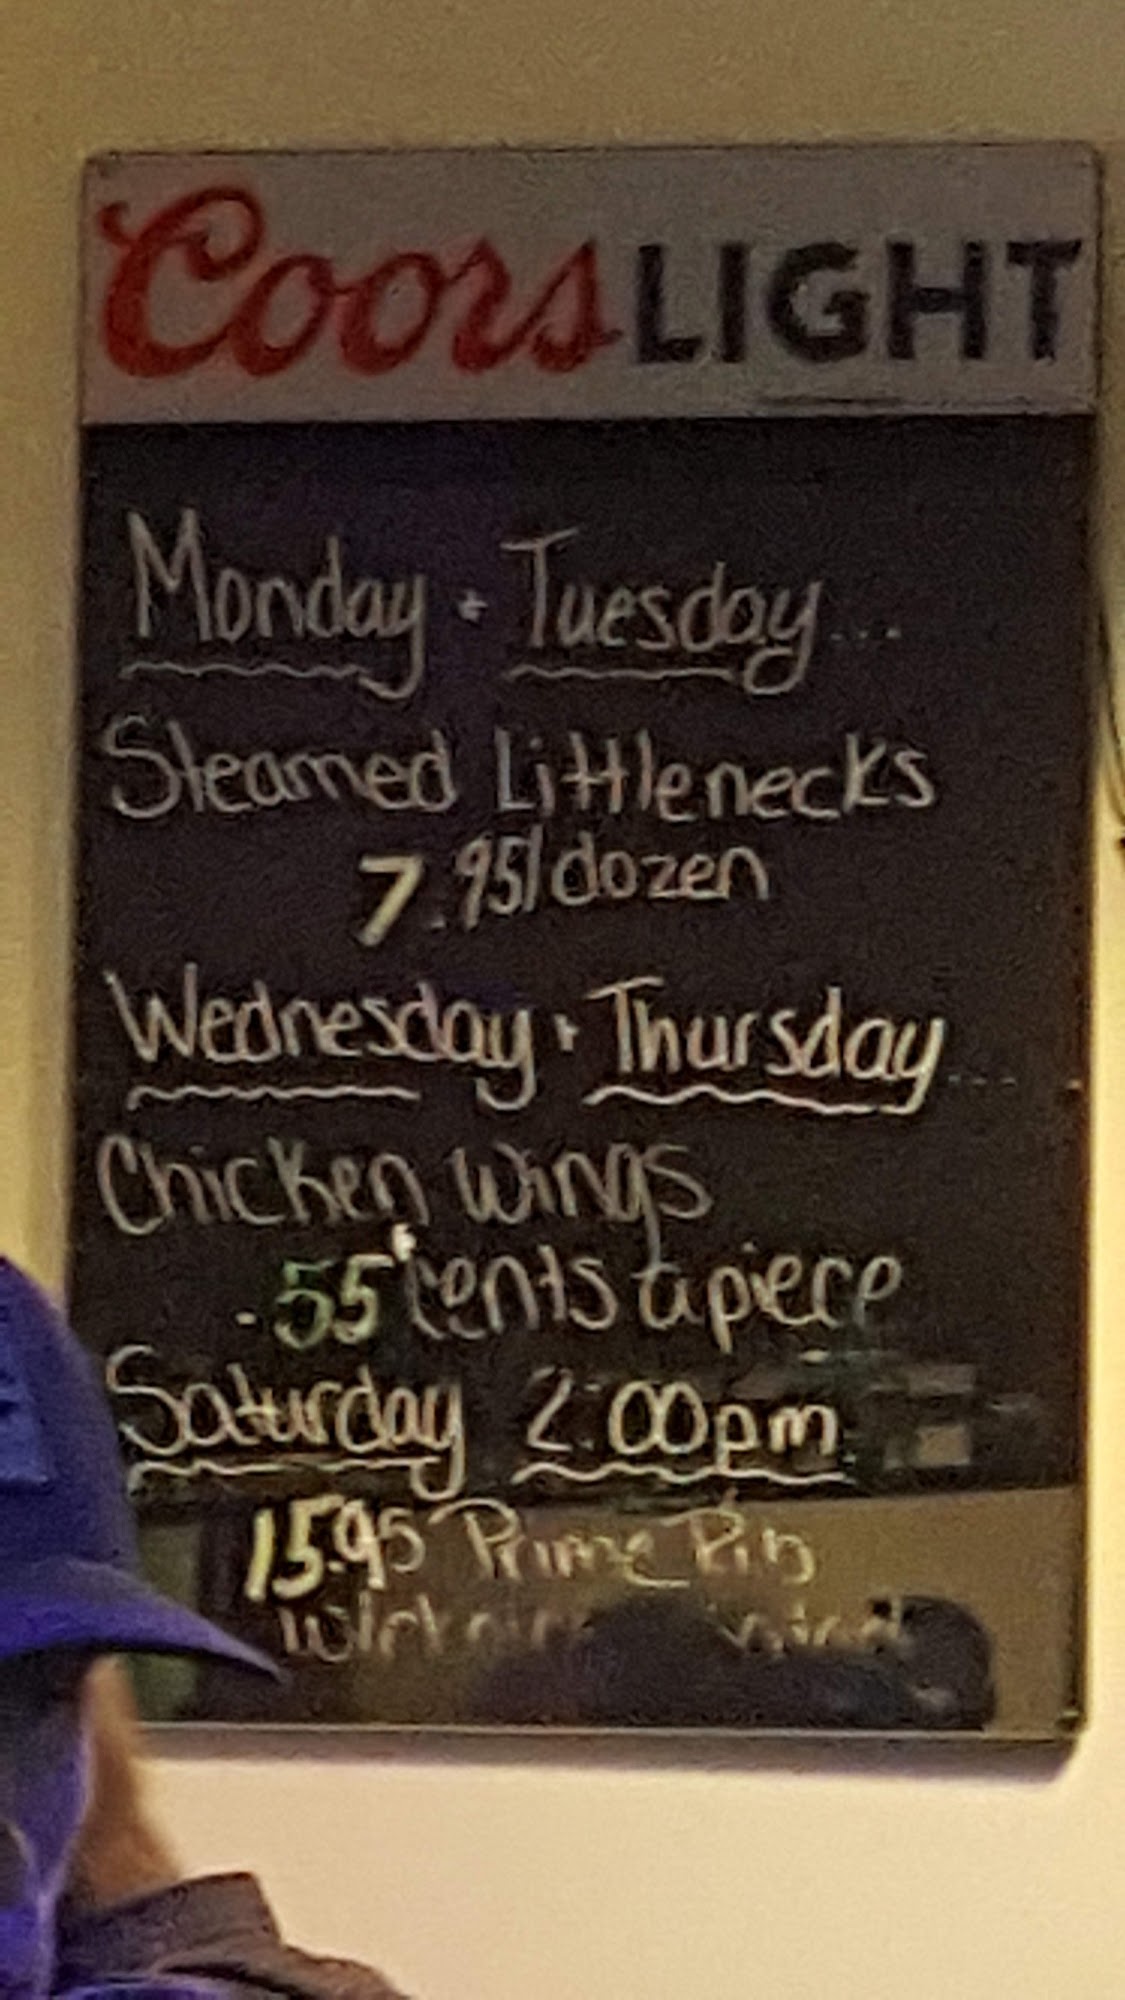 Coors LIGHT
Monday + Tuesday...
Steamed Littlenecks
7.95/dozen
Wednesday + Thursday...
Chicken Wings
.55 cents apiece
Saturday 2:00pm
15.95 Prime Rib